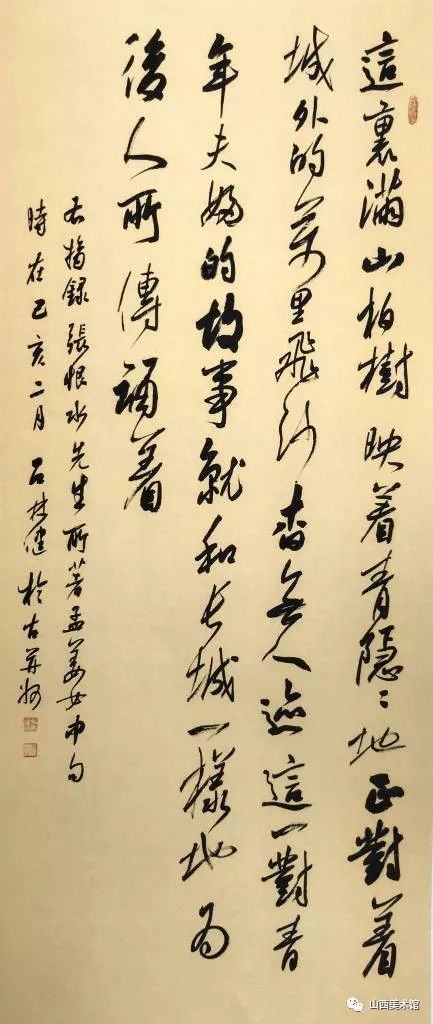 這裏滿山柏樹映着青隱〻地正對着
城外的萬里飛沙杳無人迹這一對青
年夫婦的故事就和长城一樣地为
後人所傳誦着
右摘録張恨水先生所著孟姜女中句
時在己亥二月石林健於古并州
山西美术馆